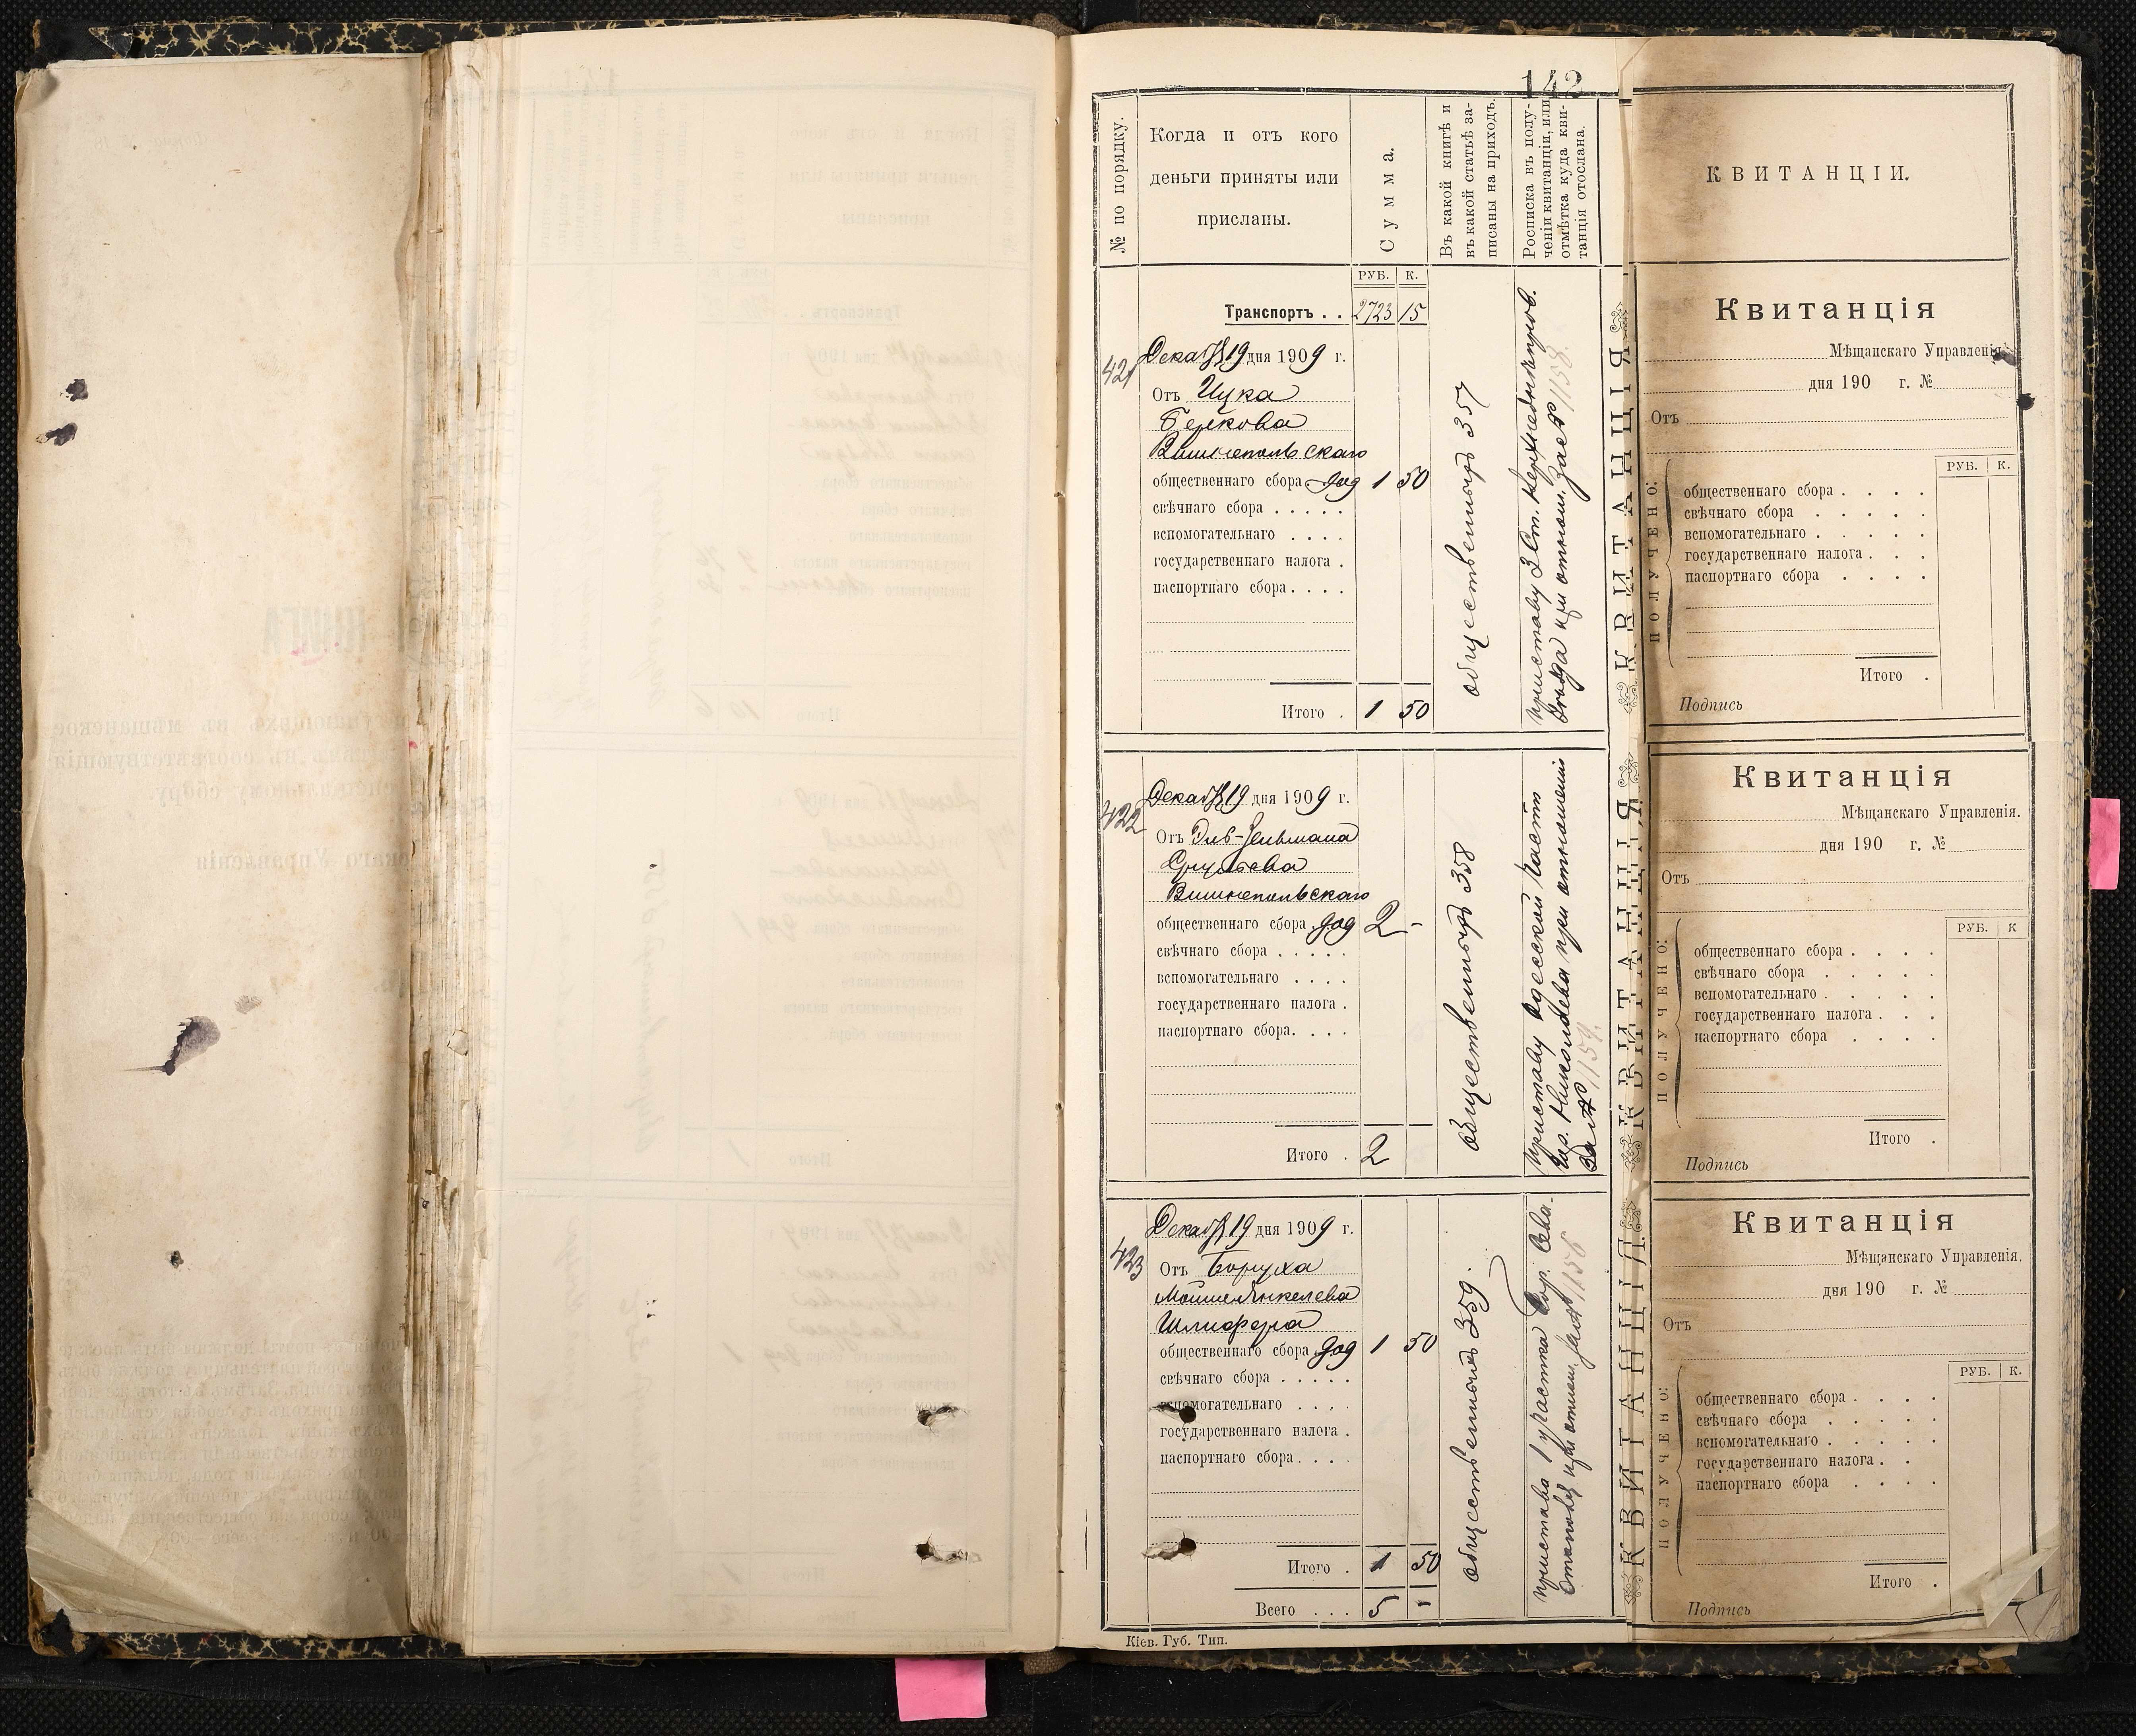 142
№ по порядку.
Когда и отъ кого
деньги приняты или
присланы.
Сумма.
Въ какой книгѣ и
въ какой статьѣ за-
писаны на приходъ.
Росписка въ полу-
ченіи квитанціи, или
отмѣтка куда кви-
танція отослана.
РУБ. К.
Транспортъ . . 2723 15
421
Декаб 19 дня 1909 г.
Отъ Ицка
Беркова
Вышнепольскаго
общественнаго сбора 909 1 50
свѣчнаго сбора . . . . .
вспомогательнаго . . . .
государственнаго налога .
паспортнаго сбора . . . .
Итого . 1 50
общественныхъ 357
приставу 2 Ст.
при отношен. за № 1158.
422
Декаб 19 дня 1909 г.
Отъ
Сруль
Вишнепольскаго
общественнаго сбора 909 2 -
свѣчнаго сбора . . . . .
вспомогательнаго . . . .
государственнаго налога .
паспортнаго сбора. . . .
Итого . 2
общественныхъ 358
приставу Одесской части
гор. Николаева при отношеніи
за № 1159.
423
Декаб 19 дня 1909 г.
Отъ Боруха
Мошке-Янкелева
Шлиофера
общественнаго сбора 909 1 50
свѣчнаго сбора . . . . .
вспомогательнаго . . . .
государственнаго налога .
паспортнаго сбора . . . .
Итого . 1 50
Всего . . . 5 -
общественныхъ 359.
пристава 1 участка гор. Сева-
стополя при отношен. за № 1156
Кіев. Губ. Тип.
КВИТАНЦІЯ
КВИТАНЦІЯ
КВИТАНЦІЯ
КВИТАНЦІИ.
Квитанція
Мѣщанскаго Управленія.
дня 190 г. №
Отъ
РУБ. К.
ПОЛУЧЕНО:
общественнаго сбора . . . .
свѣчнаго сбора . . . . .
вспомогательнаго . . . . .
государственнаго налога . . .
паспортнаго сбора . . . .
Итого .
Подпись
Квитанція
Мѣщанскаго Управленія.
дня 190 г. №
Отъ
РУБ. К
ПОЛУЧЕНО:
общественнаго сбора . . . .
свѣчнаго сбора . . . . .
вспомогательнаго . . . . .
государственнаго налога . . .
паспортнаго сбора . . . .
Итого .
Подпись
Квитанція
Мѣщанскаго Управленія.
дня 190 г. №
Отъ
РУБ. К.
ПОЛУЧЕНО:
общественнаго сбора . . . .
свѣчнаго сбора . . . . .
вспомогательнаго . . . . .
государственнаго налога . .
паспортнаго сбора . . . .
Итого .
Подпись